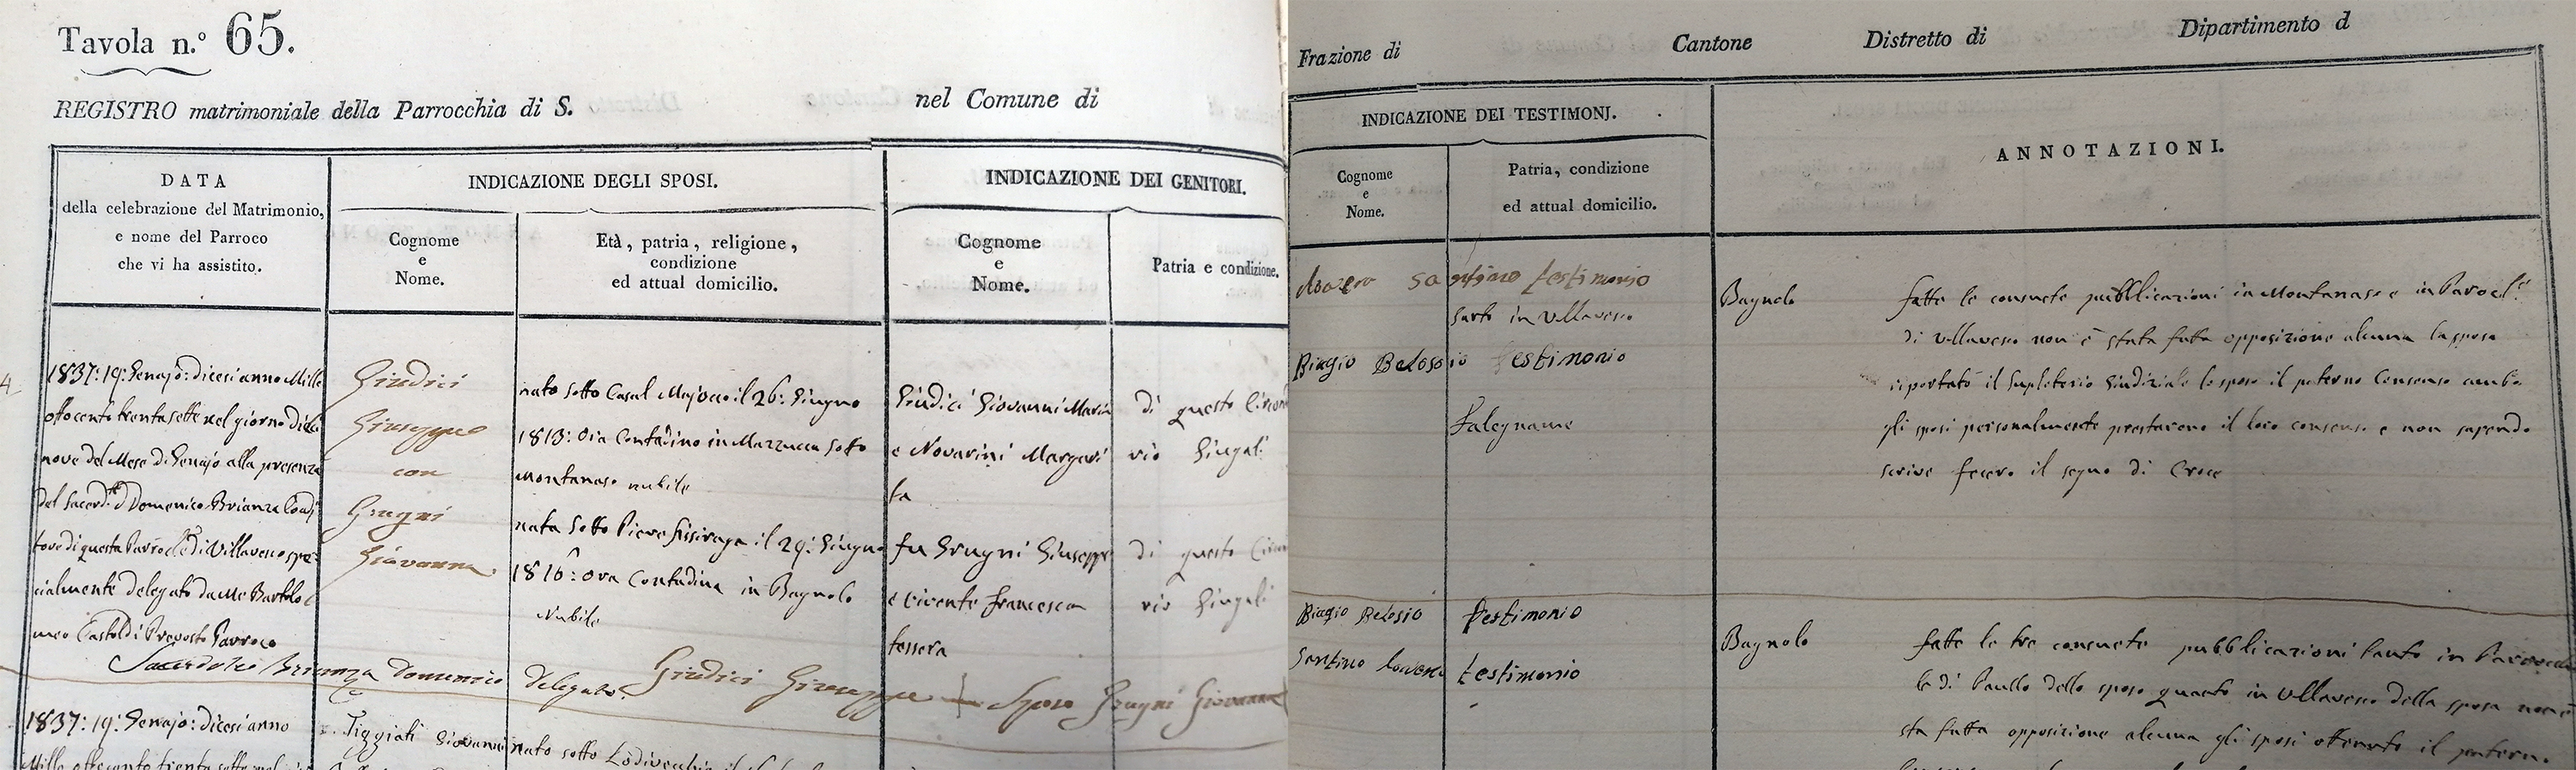 Tavola n.º 65.
REGISTRO matrimoniale della Parrocchia di S.
nel Comune di
DATA
della celebrazione del Matrimonio,
e nome del Parroco
che vi ha assistito.
INDICAZIONE DEGLI SPOSI.
Cognome
e
Nome.
Età, patria, religione,
condizione
ed attual domicilio.
INDICAZIONE DEI GENITORI.
Cognome
e
Nome.
Patria e condizione.
4
1837: 19: Genajo: dicesi anno Mille
ottocento trentasette nel giorno dieci
nove del Mese di Genajo alla presenza
del Sacerd.te D Domenico Brianza Coadj
tore di questa Parroc.le di Villavesco spe-
cialmente delegato da Me Bartolo
meo Castoldi Proposto Parroco
Giudici
Giuseppe
con
Grugni
Giovanna
nato sotto Casal Majocco il 26: Giugno
1813: Ora Contadino in Mazzucca sotto
Montanaso nubile
nata sotto Pieve fissiraga il 29: Giugno
1816: ora Contadina in Bagnolo
Nubile
Giudici Giovanni Maria
e Novarini Margari
ta
fu Grugni Giuseppe
e vivente francesca
tessera
di questo Circon
rio Singoli
di questo Circon
rio Singoli
Sacerdote Brianza Domenico delegato. Giudici Giuseppe Sposo Grugni Giovanna
1837: 19: Genajo: dicesi anno
Mille ottocento trenta sette
Giovanni
nato sotto Lodivecchio il
Frazione di
Cantone
Distretto di
Dipartimento d
INDICAZIONE DEI TESTIMONJ.
Cognome
e
Nome.
Patria, condizione
ed attual domicilio.
ANNOTAZIONI.
Santino testimonio
Sarto in Villavesco
Biagio Belosio testimonio
Falegname
Bagnolo
fatte le consuete pubblicazioni in Montanaso e in Paroch.e
di Villavesco non è stata fatta opposizione alcuna la sposa
riportato il Supletorio Giudiziale lo sposo il paterno Consenso ambo
gli sposi personalmente prestarono il loro consenso e non sapendo
scrive fecero il segno di Croce
Biagio Belosio testimonio
Santino testimonio
Bagnolo
fatte le tre consuete pubblicazioni tanto in Parrocch
le di Paullo dello sposo quanto in Villavesco della sposa non è
sta fatta opposizione alcuna gli sposi ottenuto il paterno